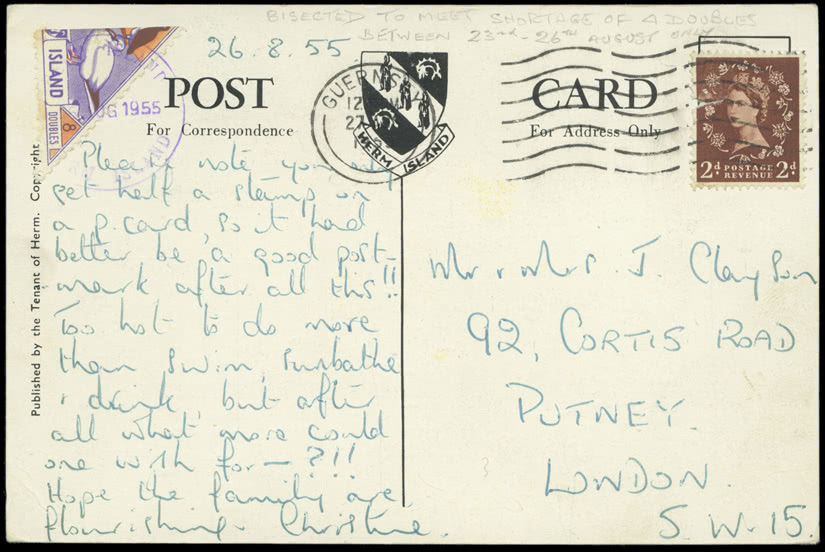 BISECTED TO MEET SHORTAGE OF 4 DOUBLES
BETWEEN 23rd - 26th AUGUST ONLY
26.8.55
ISLAND
8
DOUBLES
1955
POST
For Correspondence
GUERNS
12
27
HERM ISLAND
CARD
For Address Only
2d POSTAGE 2d
REVENUE
Published by the Tenant of Herm. Copyright
Please note you only
get half a stamp on
a p.card, so it had
better be a good post-
mark after all this!!
Too hot to do more
than swim, sunbathe
& drink, but after
all what more could
one wish for — ?!!
Hope the family are
flourishing. Christine.
Mr & Mrs J. Clayson
92, CORTIS ROAD
PUTNEY.
LONDON.
S.W.15.